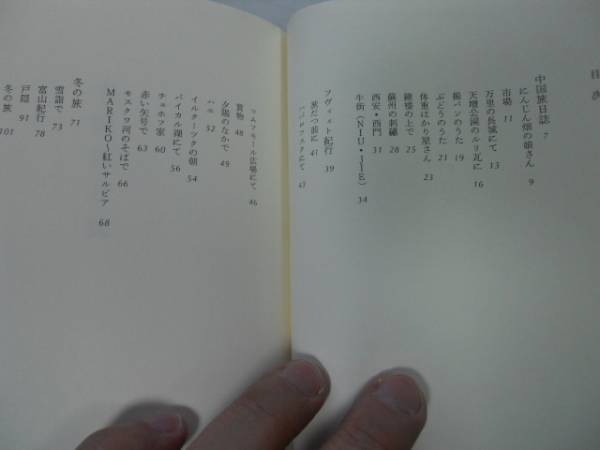 目次
中国旅日誌 7
にんじん畑の娘さん 9
市場 11
万里の長城にて 13
天壇公園のルリ瓦に 16
揚パンのうた 19
ぶどうのうた 21
体重はかり屋さん 23
鐘楼の上で 25
蘇州の刺繍 28
西安・西門 31
牛街(NIU・JIE) 34
ソヴィエト紀行 39
旅だつ前に 41
ハバロフスクにて 43
コムソモール広場にて 46
買物 48
夕陽のなかで 49
ハエ 52
イルクーツクの朝 54
バイカル湖にて 56
チェホフ家 60
赤い矢号で 63
モスクワ河のそばで 66
MARIKO〜紅いサルビア 68
冬の旅 71
雪詣で 73
富山紀行 78
戸隠 91
冬の旅 101